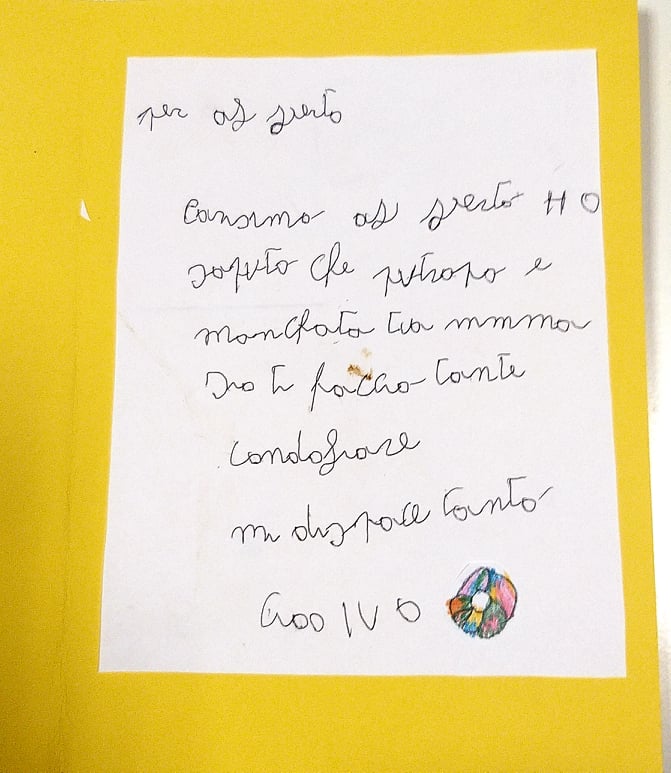 per alberto
Carisimo alberto HO
saputo che putropo e
manchata tua mmma
Io ti faccio tante
condoliaze
mi dispace tanto
Ciao IVO